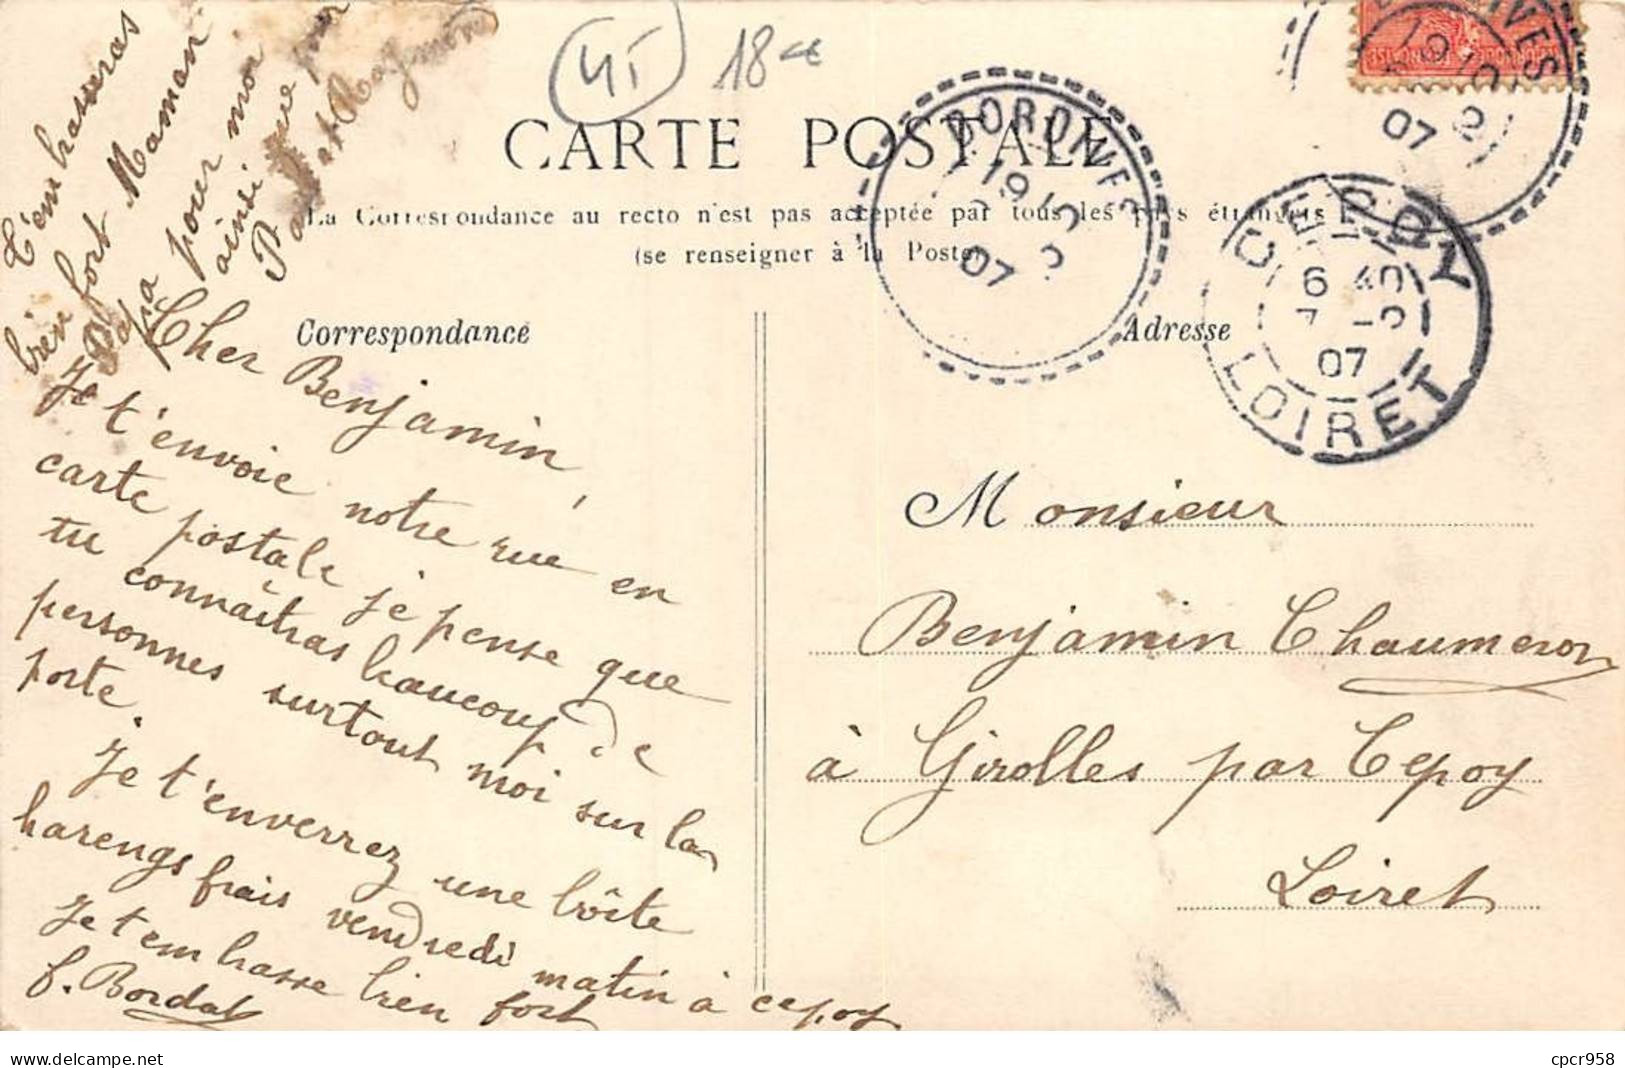 T'embrasseras
bien fort Maman
Papa pour moi
ainsi que
et Raymond
(45) 18 cc
CARTE POSTALE
La Correspondance au recto n'est pas acceptée par tous les pays étrangers
(se renseigner à la Poste)
DORDIVES
19 40
07
DORDIVES
19
07
CEPOY
6 40
07
LOIRET
Correspondance
Adresse
Cher Benjamin,
Je t'envoie notre rue en
carte postale je pense que
tu connaîtras beaucoup de
personnes surtout moi sur la
porte.
Je t'enverrez une boîte
harengs frais vendredi matin à cepoy
Je t'embrasse bien fort
f. Bordat
Monsieur
Benjamin Chaumeron
à Girolles par Cepoy
Loiret
cpcr958